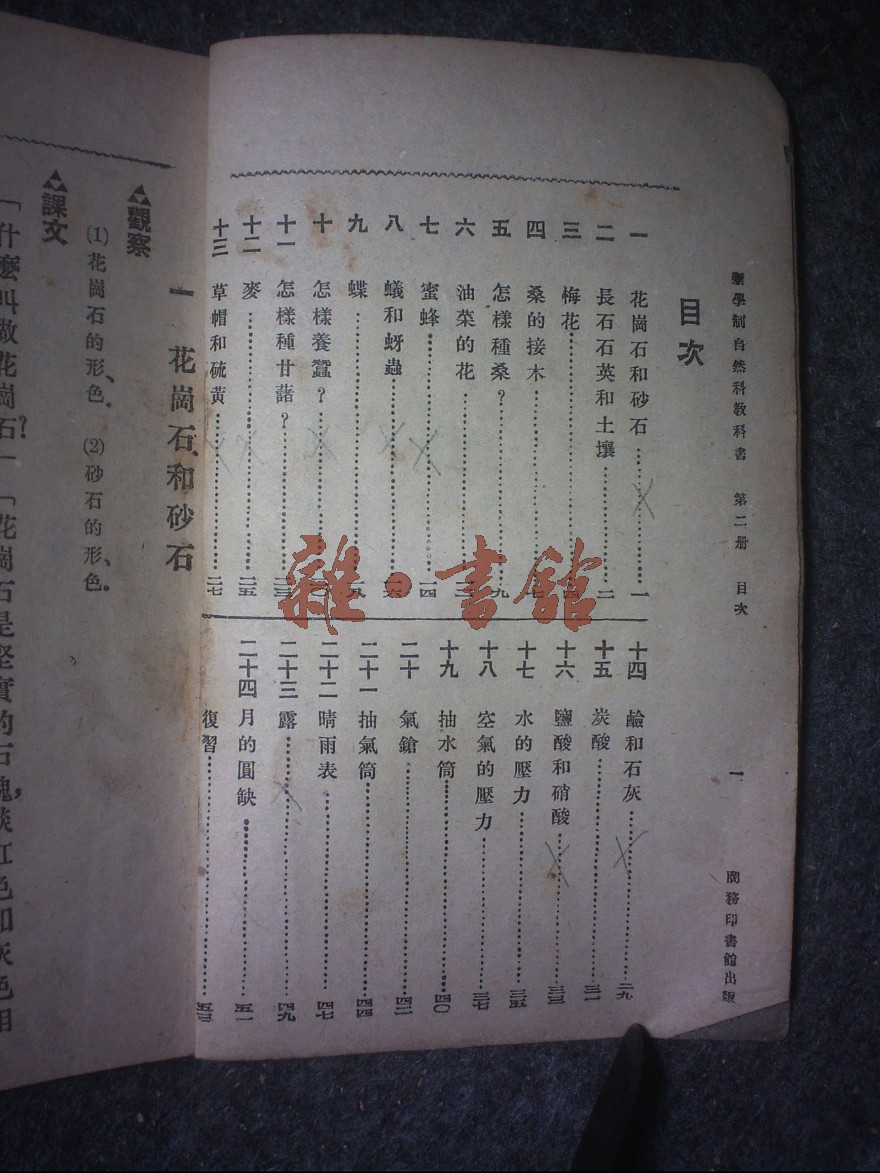 新學制自然科教科書 第二册 目次 一 商務印書館出版
目次
一 花崗石和砂石 一
二 長石石英和土壤 二
三 梅花
四 桑的接木
五 怎樣種桑？ 九
六 油菜的花
七 蜜蜂 一四
八 蟻和蚜蟲 一六
九 蝶
十 怎樣養蠶？
十一 怎樣種甘藷？ 二三
十二 麥 二五
十三 草帽和硫黃 二七
十四 鹼和石灰 二九
十五 炭酸 三一
十六 鹽酸和硝酸 三三
十七 水的壓力 三五
十八 空氣的壓力 三七
十九 抽水筒 四〇
二十 氣鎗 四二
二十一 抽氣筒 四四
二十二 晴雨表 四七
二十三 露 四九
二十四 月的圓缺 五一
復習 五三
一 花崗石和砂石
觀察
(1)花崗石的形、色。 (2)砂石的形、色。
課文
「什麼叫做花崗石？」「花崗石是堅實的石塊，淡紅色和灰色相
雜·書館